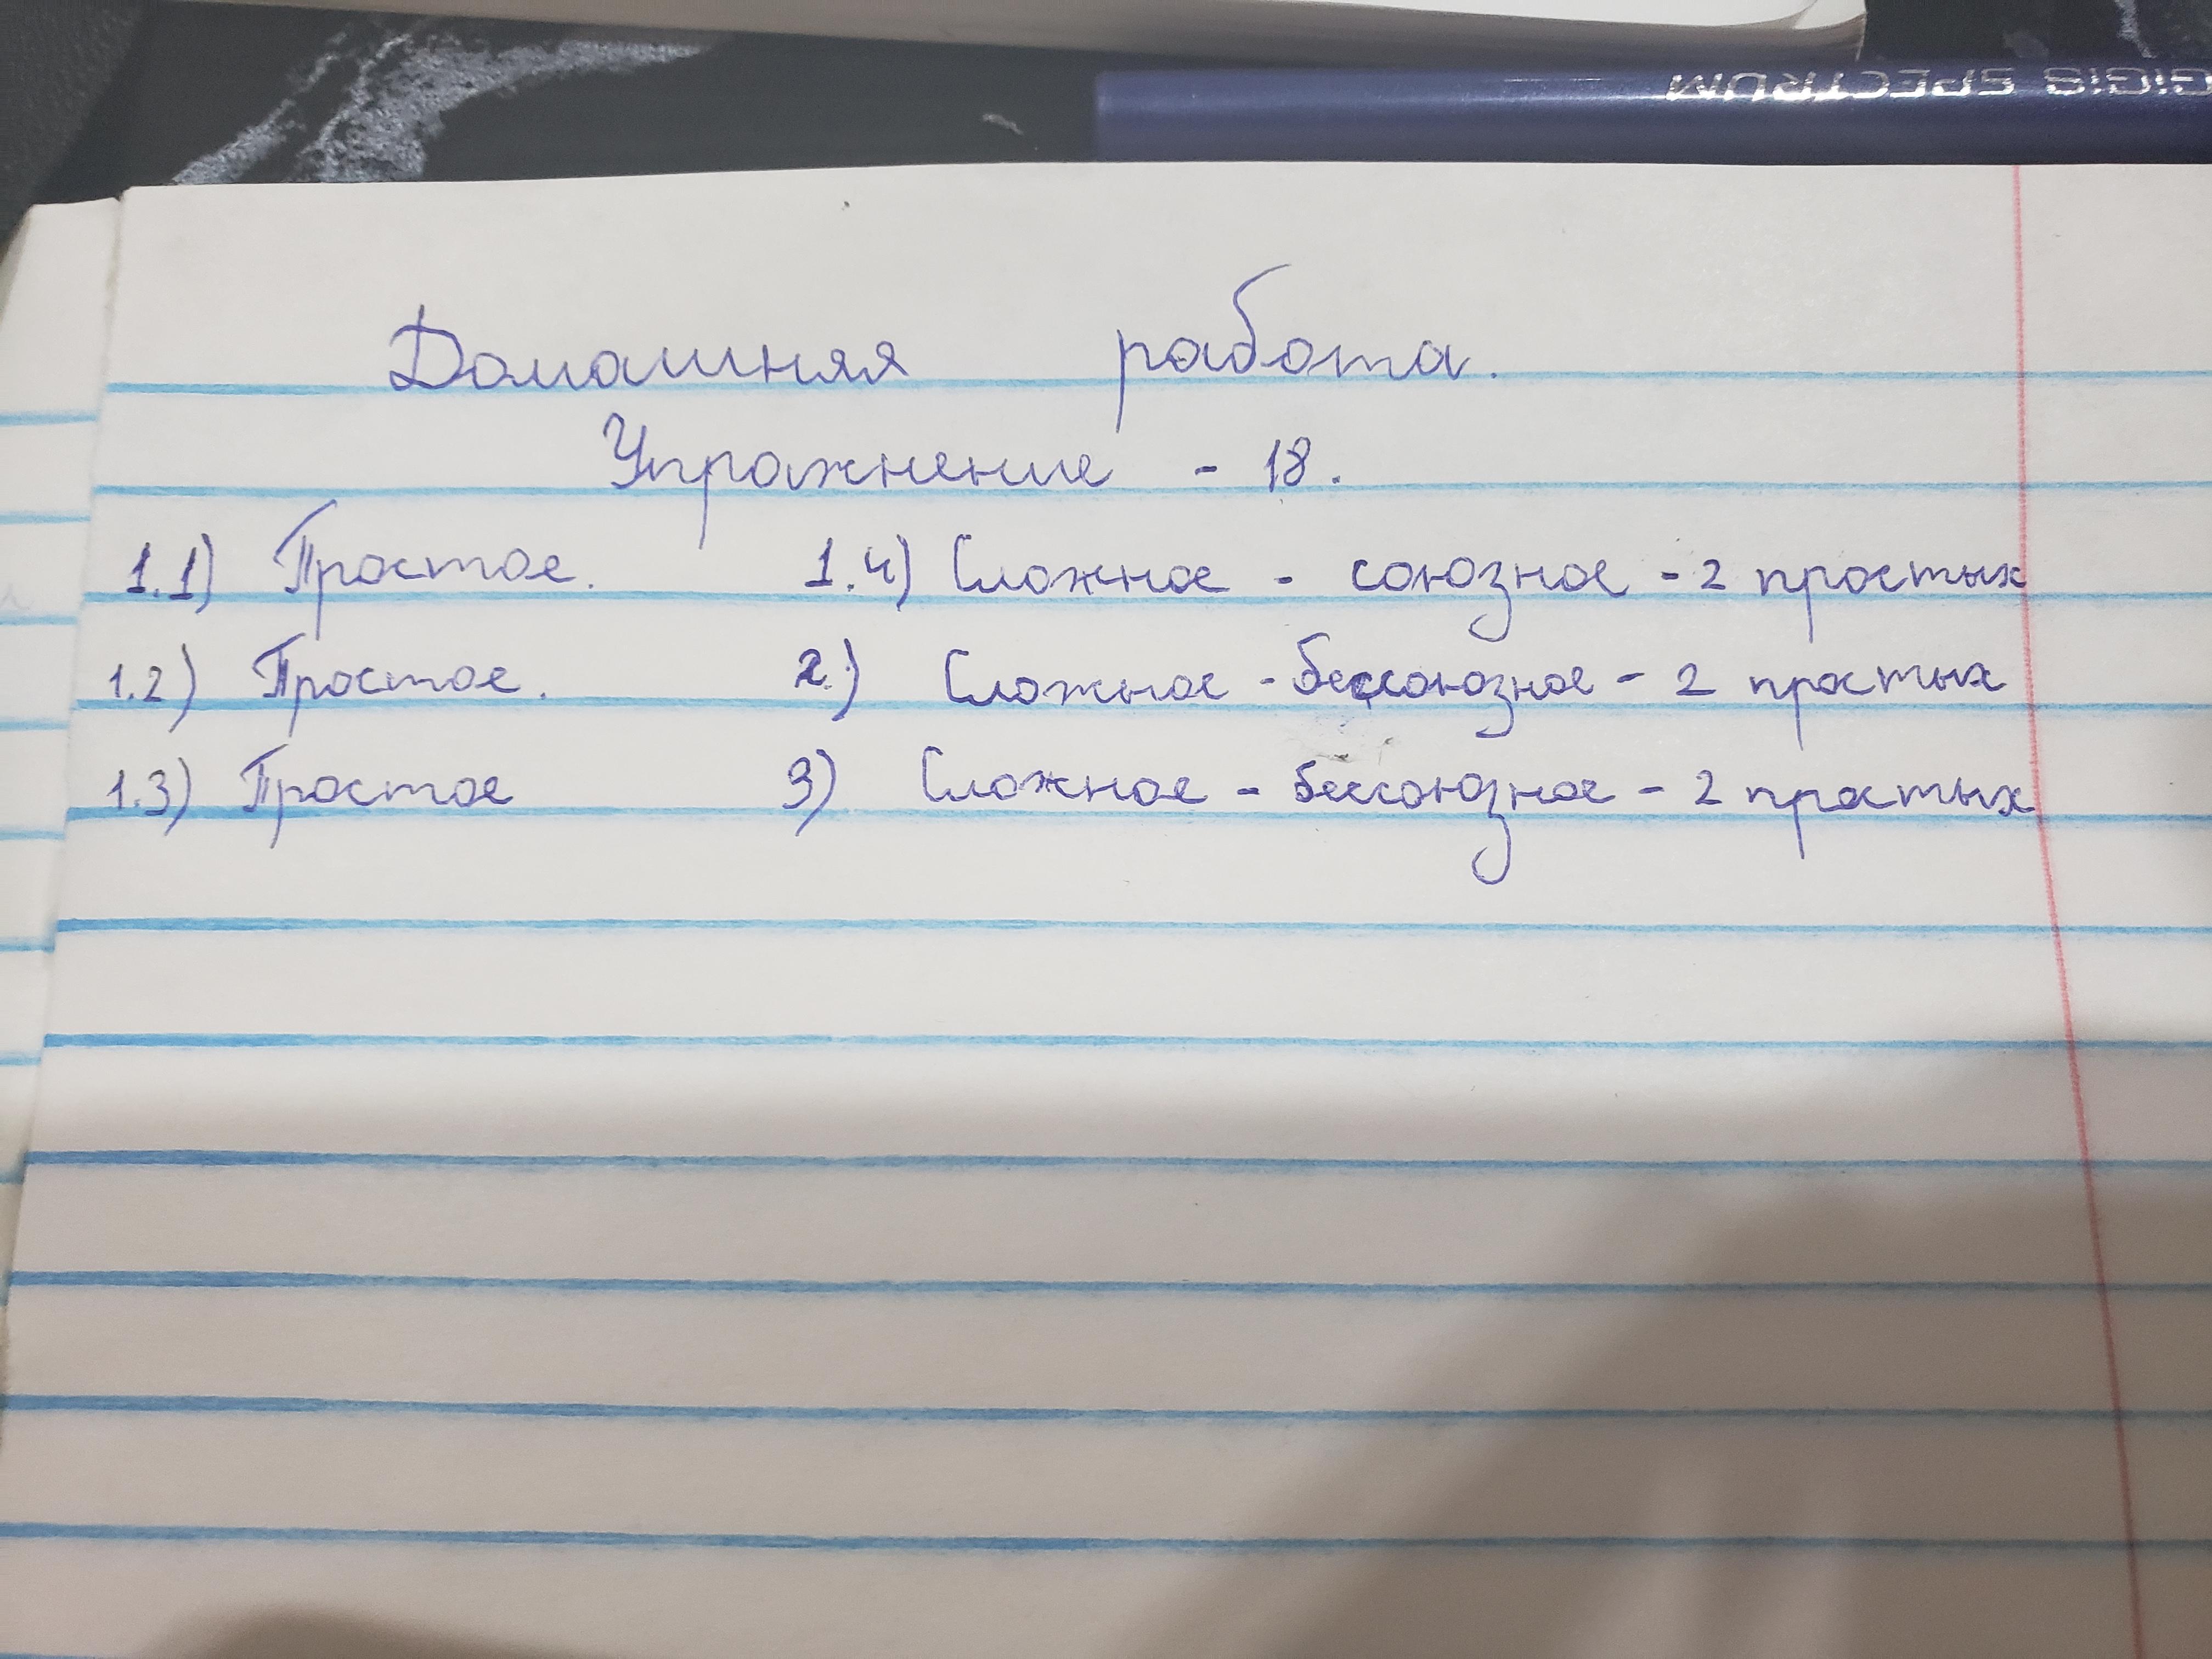 GIGIS SPECTRUM
Домашняя работа.
Упражнение - 18.
1.1) Простое. 1.4) Сложное - союзное - 2 простых
1.2) Простое. 2.) Сложное - бессоюзное - 2 простых
1.3) Простое 3) Сложное - бессоюзное - 2 простых